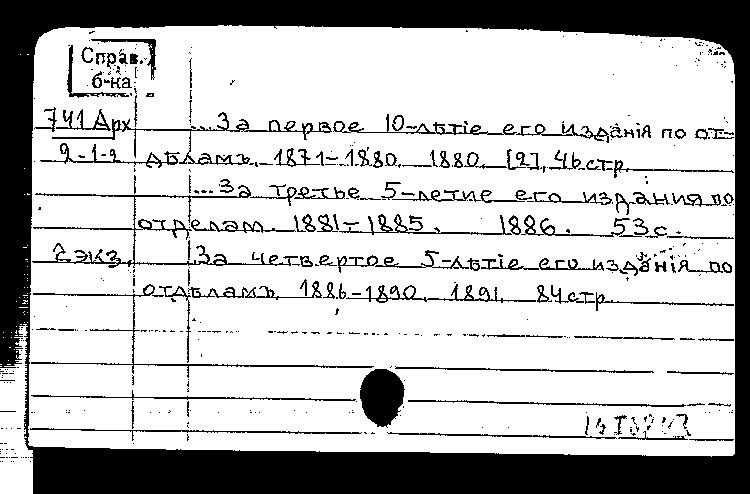 Справ.
б-ка
741 Арх ...За первое 10-лѣтіе его изданія по от-
9-1-2 дѣламъ. 1871-1880. 1880. [2], 46 стр.
...За третье 5-летие его издания по
отделам. 1881-1885. 1886. 53 с.
2 экз. За четвертое 5-лѣтіе его изданія по
отдѣламъ. 1886-1890. 1891. 84 стр.